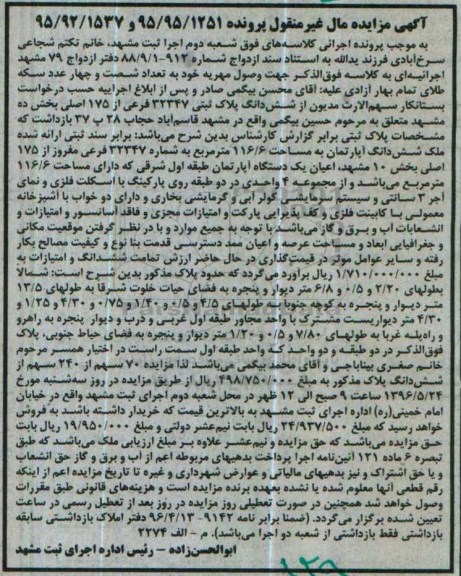 آگهی مزایده مال غیرمنقول پرونده ۹۵/۹۵/۱۲۵۱ و ۹۵/۹۲/۱۵۳۷
به موجب پرونده اجرائی کلاسه‌های فوق شعبه دوم اجرا ثبت مشهد، خانم تکتم شجاعی
سرخ‌آبادی فرزند یدالله به استناد سند ازدواج شماره ۹۱۲-۸۸/۹/۱ دفتر ازدواج ۷۹ مشهد
اجرائیه‌ای به کلاسه فوق‌الذکر جهت وصول مهریه خود به تعداد شصت و چهار عدد سکه
طلای تمام بهار آزادی علیه: آقای محسن بیگمی صادر و پس از ابلاغ اجراییه حسب درخواست
بستانکار سهم‌الارث مدیون از شش‌دانگ پلاک ثبتی ۳۲۳۴۷ فرعی از ۱۷۵ اصلی بخش ده
مشهد متعلق به مرحوم حسین بیگمی واقع در مشهد قاسم‌آباد حجاب ۲۸ پ ۳۷ بازداشت که
مشخصات پلاک ثبتی برابر گزارش کارشناس بدین شرح می‌باشد: برابر سند ثبتی ارائه شده
ملک شش‌دانگ آپارتمان به مساحت ۱۱۶/۶ مترمربع به شماره ۳۲۳۴۷ فرعی مفروز از ۱۷۵
اصلی بخش ۱۰ مشهد، اعیان یک دستگاه آپارتمان طبقه اول شرقی که دارای مساحت ۱۱۶/۶
مترمربع می‌باشد و از مجموعه ۴ واحدی در دو طبقه روی پارکینگ با اسکلت فلزی و نمای
آجر ۳ سانتی و سیستم سرمایشی کولر آبی و گرمایشی بخاری و دارای دو خواب با آشپزخانه
معمولی با کابینت فلزی و کف پذیرایی پارکت و امتیازات مجزی و فاقد آسانسور و امتیازات و
انشعابات آب و برق و گاز می‌باشد با توجه به جمیع موارد و با در نظر گرفتن موقعیت مکانی
و جغرافیایی ابعاد و مساحت عرصه و اعیان ممد دسترسی قدمت بنا نوع و کیفیت مصالح بکار
رفته و سایر عوامل موثر در قیمت‌گذاری در حال حاضر ارزش تمامت ششدانگ و امتیازات به
مبلغ ۱/۷۱۰/۰۰۰/۰۰۰ ریال برآورد می‌گردد که حدود پلاک مذکور بدین شرح است: شمالا
بطولهای ۲/۲۰ و ۰/۵ و ۶/۸ متر دیوار و پنجره به فضای حیات خلوت شرقا به طولهای ۱۳/۵
متر دیوار و پنجره به کوچه جنوبا به طولهای ۴/۵ و ۰/۵ و ۱/۴۰ و ۰/۷۵ و ۴/۳۰ و ۱/۲۵ و
۴/۳۰ متر دیواریست مشترک با واحد مجاور طبقه اول غربی و درب و دیوار پنجره به راهرو
و راه‌پله غربا به طولهای ۷/۸۰ و ۰/۵ و ۱/۲۰ متر دیوار و پنجره به فضای حیاط جنوبی، پلاک
فوق‌الذکر در دو طبقه و دو واحد که واحد طبقه اول سمت راست در اختیار همسر مرحوم
خانم صغری بیناباجی و آقای محمد بیگمی می‌باشد لذا مزایده ۷۰ سهم از ۲۴۰ سهم از
شش‌دانگ پلاک مذکور به مبلغ ۴۹۸/۷۵۰/۰۰۰ ریال از طریق مزایده در روز سه‌شنبه مورخ
۱۳۹۶/۵/۲۴ ساعت ۹ صبح الی ۱۲ ظهر در محل شعبه دوم اجرای ثبت مشهد واقع در خیابان
امام خمینی(ره) اداره اجرای ثبت مشهد به بالاترین قیمت که خریدار داشته باشد به فروش
خواهد رسید که مبلغ ۲۴/۹۳۷/۵۰۰ ریال بابت نیم‌عشر دولتی و مبلغ ۱۹/۹۵۰/۰۰۰ ریال بابت
حق مزایده می‌باشد که حق مزایده و نیم‌عشر علاوه بر مبلغ ارزیابی ملک می‌باشد که طبق
تبصره ۶ ماده ۱۲۱ آئین‌نامه اجرا پرداخت بدهیهای مربوطه اعم از آب و برق و گاز حق انشعاب
و یا حق اشتراک و نیز بدهیهای مالیاتی و عوارض شهرداری و غیره تا تاریخ مزایده اعم از اینکه
رقم قطعی آنها معلوم شده یا نشده بعهده برنده مزایده است و هزینه‌های قانونی طبق مقررات
وصول خواهد شد همچنین در صورت تعطیلی روز مزایده در روز بعد از تعطیل رسمی در ساعت
تعیین شده برگزار می‌گردد. (ضمنا برابر نامه ۹۱۴۲- ۹۶/۴/۱۳ دفتر املاک بازداشتی سابقه
بازداشتی فقط بازداشتی از شعبه دو اجرا می‌باشد). م - الف ۲۲۷۴
ابوالحسن‌زاده - رئیس اداره اجرای ثبت مشهد